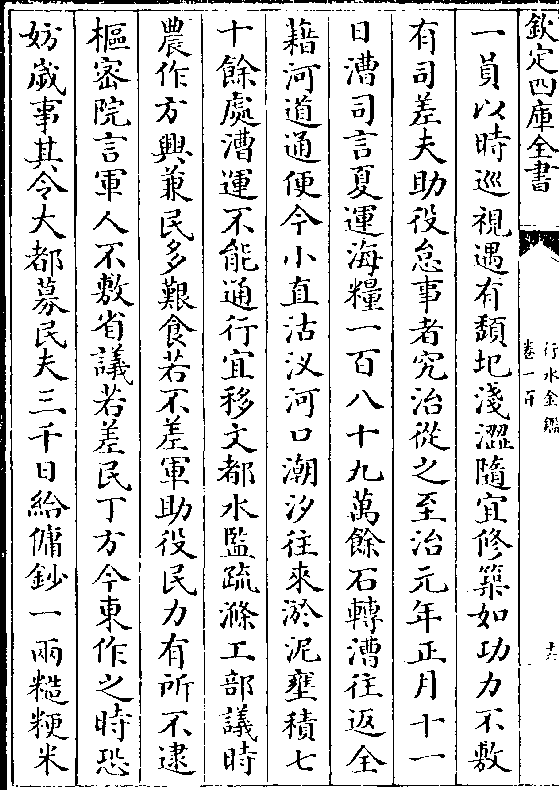 欽定四庫全書
行水金鑑
卷一百
十六
一員以時巡視遇有頽圯淺澀隨宜修築如功力不敷
有司差夫助役怠事者究治從之至治元年正月十一
日漕司言夏運海糧一百八十九萬餘石轉漕往返全
藉河道通便今小直沽汊河口潮汐往來淤泥壅積七
十餘處漕運不能通行宜移文都水監疏滌工部議時
農作方興兼民多艱食若不差軍助役民力有所不逮
樞密院言軍人不敷省議若差民丁方今東作之時恐
妨歲事其令大都募民夫三千日給傭鈔一兩糙粳米